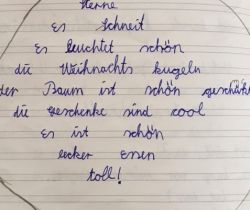 Sterne
Es Schneit
Es leuchtet schön
die Weihnachts kugeln
der Baum ist schön geschmückt
die Geschenke sind cool
Es ist schön
lecker Essen
toll!